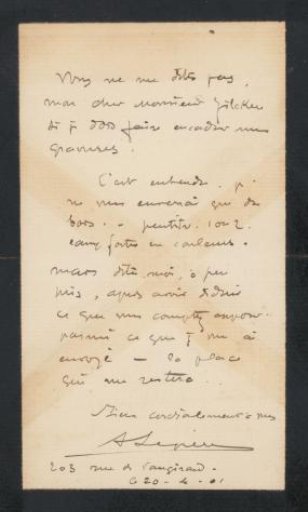 Vous ne me dites pas,
mon cher Monsieur Zilcken
si je dois faire encadrer mes
gravures.
C'est entendu. je
ne vous enverrai que des
bois. - peut être 1 ou 2
eaux fortes en couleurs.
mais dites moi, à peu
près, après avoir
ce que vous comptez
parmi ce que je vous ai
envoyé - la place
qui me restera.
Bien cordialement à vous
A Lepère
203 rue de Vaugirard.
20 - 4 - 01